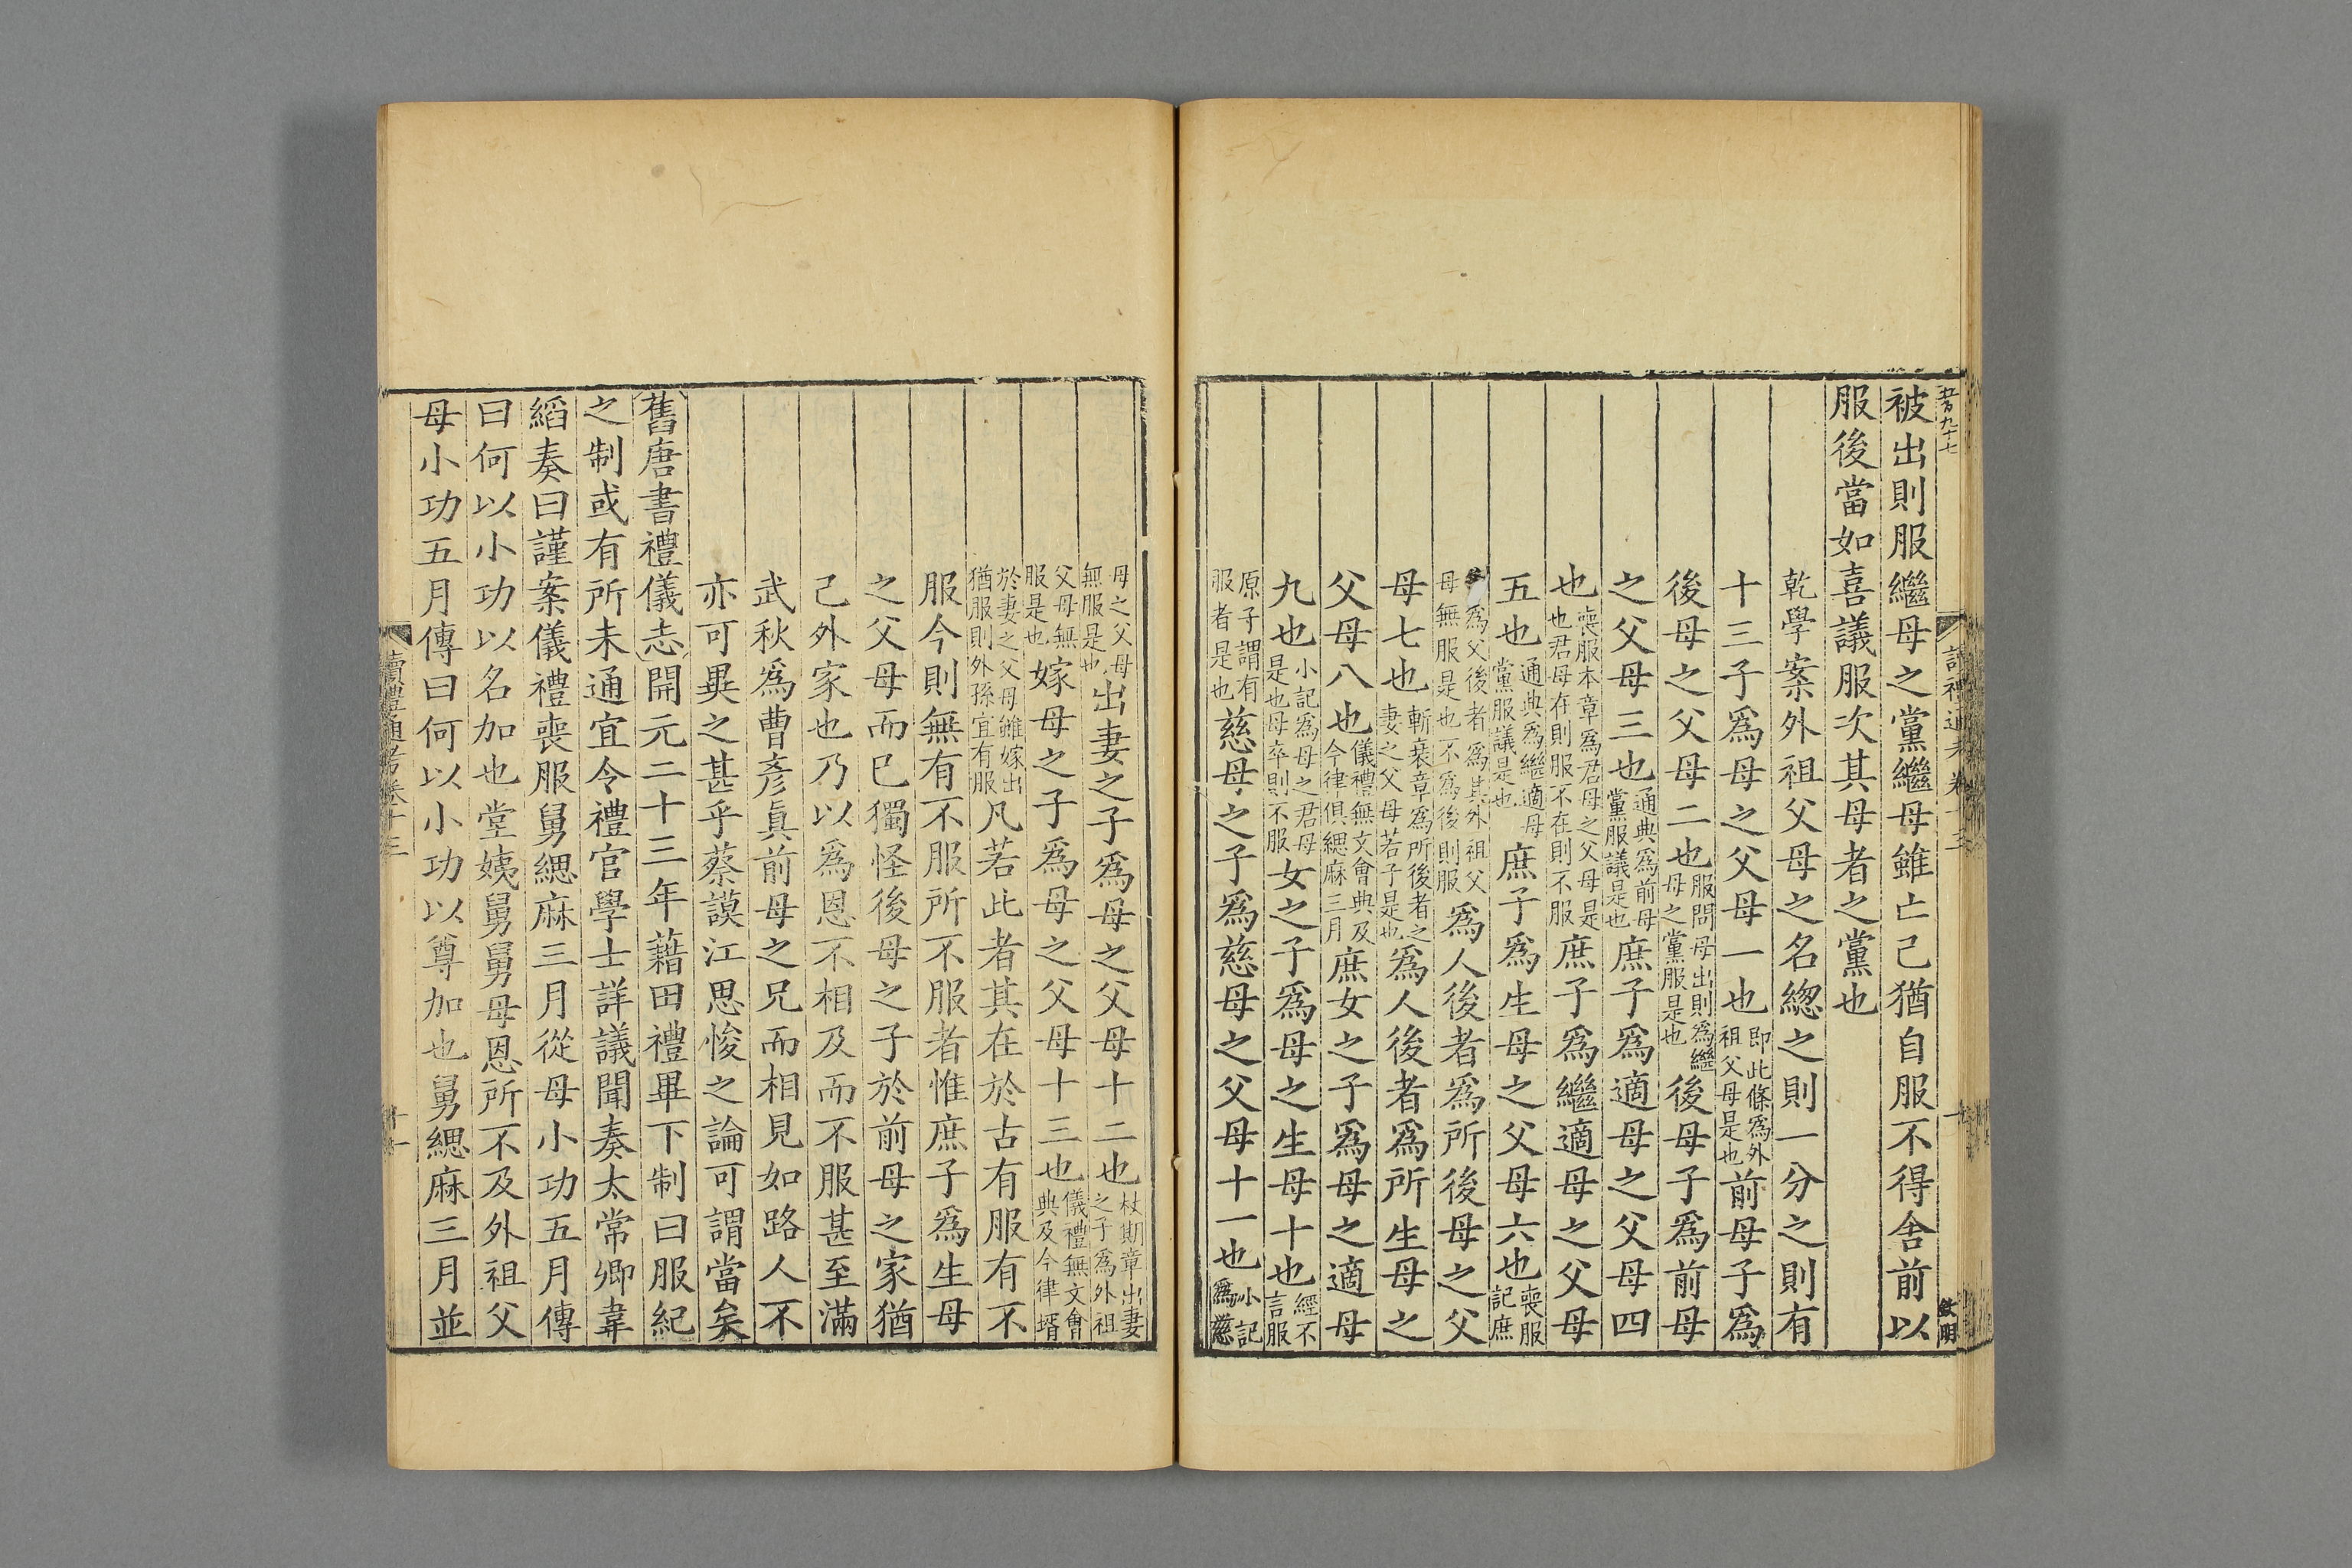 被出則服繼母之黨繼母雖亡己猶自服不得舍前以
服後當如喜議服次其母者之黨也
乾學案外祖父母之名緫之則一分之則有
十三子爲母之父母一也即此條爲外祖父母是也前母子爲
後母之父母二也服問母出則爲繼母之黨服是也後母子爲前母
之父母三也通典爲前母黨服議是也庶子爲適母之父母四
也喪服本章爲君母之父母是也君母在則服不在則不服庶子爲繼適母之父母
五也通典爲繼適母黨服議是也庶子爲生母之父母六也喪服記庶
爲父後者爲其外祖父母無服是也不爲後則服爲人後者爲所後母之父
母七也斬衰章爲所後者之妻之父母若子是也爲人後者爲所生母之
父母八也儀禮無文會典及今律俱緦麻三月庶女之子爲母之適母
九也小記爲母之君母是也母卒則不服女之子爲母之生母十也經不言服
原子謂有服者是也慈母之子爲慈母之父母十一也小記爲慈
母之父母無服是也出妻之子爲母之父母十二也杖期章出妻之子爲外祖
父母無服是也嫁母之子爲母之父母十三也儀禮無文會典及今律壻
於妻之父母雖嫁出猶服則外孫宜有服凡若此者其在於古有服有不
服今則無有不服所不服者惟庶子爲生母
之父母而已獨怪後母之子於前母之家猶
己外家也乃以爲恩不相及而不服甚至滿
武秋爲曹彥眞前母之兄而相見如路人不
亦可異之甚乎蔡謨江思悛之論可謂當矣
舊唐書禮儀志開元二十三年藉田禮畢下制曰服紀
之制或有所未通宜令禮官學士詳議聞奏太常卿韋
縚奏曰謹案儀禮喪服舅緦麻三月從母小功五月傳
曰何以小功以名加也堂姨舅舅母恩所不及外祖父
母小功五月傳曰何以小功以尊加也舅緦麻三月並
讀禮通考卷十三